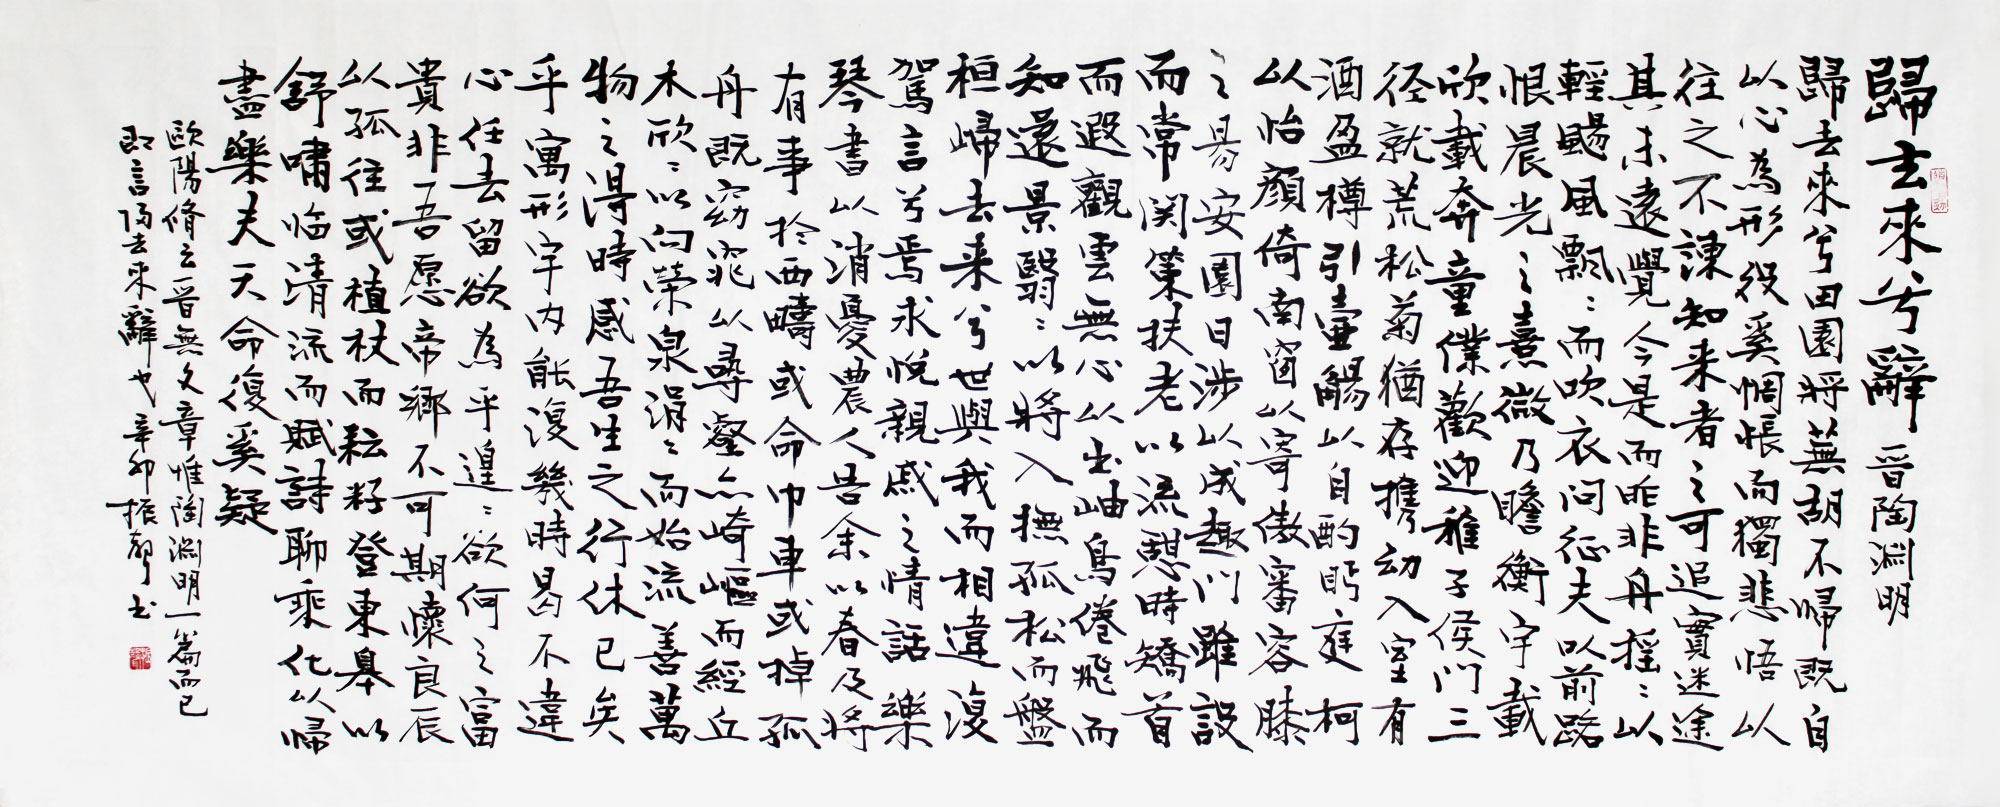 歸去來兮辭 晉陶淵明
歸去來兮田園将蕪胡不歸既自
以心為形役奚惆悵而獨悲悟以
往之不諫知来者之可追實迷途
其未遠覺今是而昨非舟摇〻以
輕颺風飄〻而吹衣问征夫以前路
恨晨光之熹微乃瞻衡宇載
欣載奔童僕歡迎稚子侯门三
径就荒松菊猶存攜幼入室有
酒盈樽引壺觴以自酌眄庭柯
以怡顏倚南窗以寄傲審容膝
之易安園日涉以成趣门雖設
而常関策扶老以流憩時矯首
而遐觀雲無心以出岫鳥倦飛而
知還景翳〻以將入撫孤松而盤
桓歸去来兮世與我而相違復
駕言兮焉求悦親戚之情話樂
琴書以消憂農人告余以春及將
有事於西疇或命巾車或棹孤
舟既窈窕以尋壑亦崎嶇而經丘
木欣〻以向荣泉涓〻而始流善萬
物之得時感吾生之行休已矣
乎寓形宇内能復幾時曷不違
心任去留欲為乎遑〻欲何之富
貴非吾愿帝鄉不可期懷良辰
以孤往或植杖而耘耔登東皋以
舒嘯临清流而賦詩聊乘化以歸
盡樂夫天命復奚疑
歐陽脩云晉無文章惟陶淵明一篇而已
即言歸去来辭也辛卯振聲书